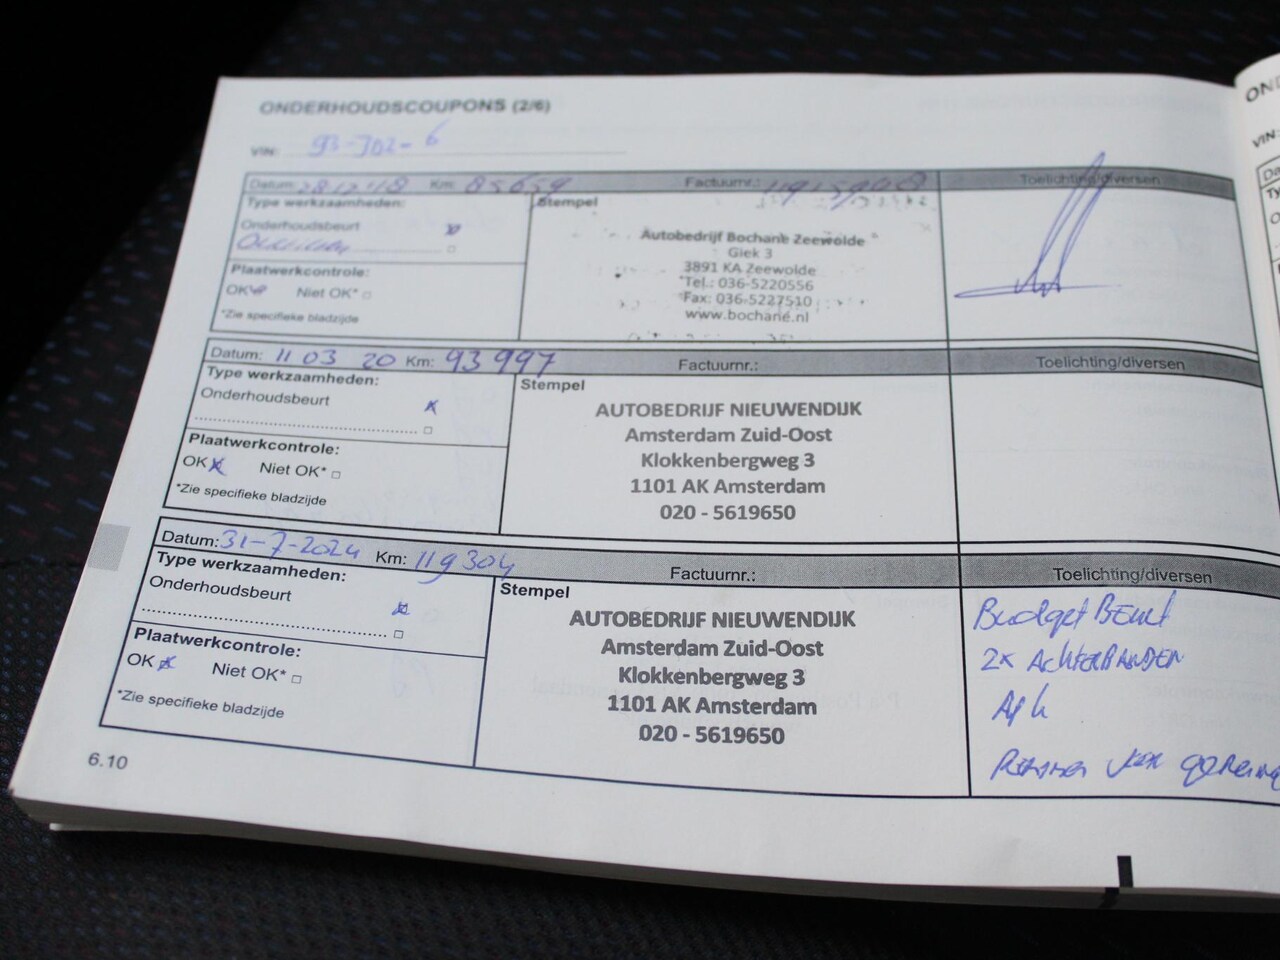 ONDERHOUDSCOUPONS (2/6)
VIN: 93-702-6
Datum: 28 12 18 Km: 85659 Factuurnr.: Toelichting/diversen
Type werkzaamheden:
Onderhoudsbeurt
Plaatwerkcontrole:
OK Niet OK*
*Zie specifieke bladzijde
Stempel
Autobedrijf Bochane Zeewolde
Giek 3
3891 KA Zeewolde
Tel.: 036-5220556
Fax: 036-5227510
www.bochane.nl
Datum: 11 03 20 Km: 93997 Factuurnr.: Toelichting/diversen
Type werkzaamheden:
Onderhoudsbeurt
Plaatwerkcontrole:
OK Niet OK*
*Zie specifieke bladzijde
Stempel
AUTOBEDRIJF NIEUWENDIJK
Amsterdam Zuid-Oost
Klokkenbergweg 3
1101 AK Amsterdam
020 - 5619650
Datum: 31-7-2024 Km: 119304 Factuurnr.: Toelichting/diversen
Type werkzaamheden:
Onderhoudsbeurt
Plaatwerkcontrole:
OK Niet OK*
*Zie specifieke bladzijde
Stempel
AUTOBEDRIJF NIEUWENDIJK
Amsterdam Zuid-Oost
Klokkenbergweg 3
1101 AK Amsterdam
020 - 5619650
Budget Beurt
2x ACHTERBANDEN
Apk
6.10
VIN: